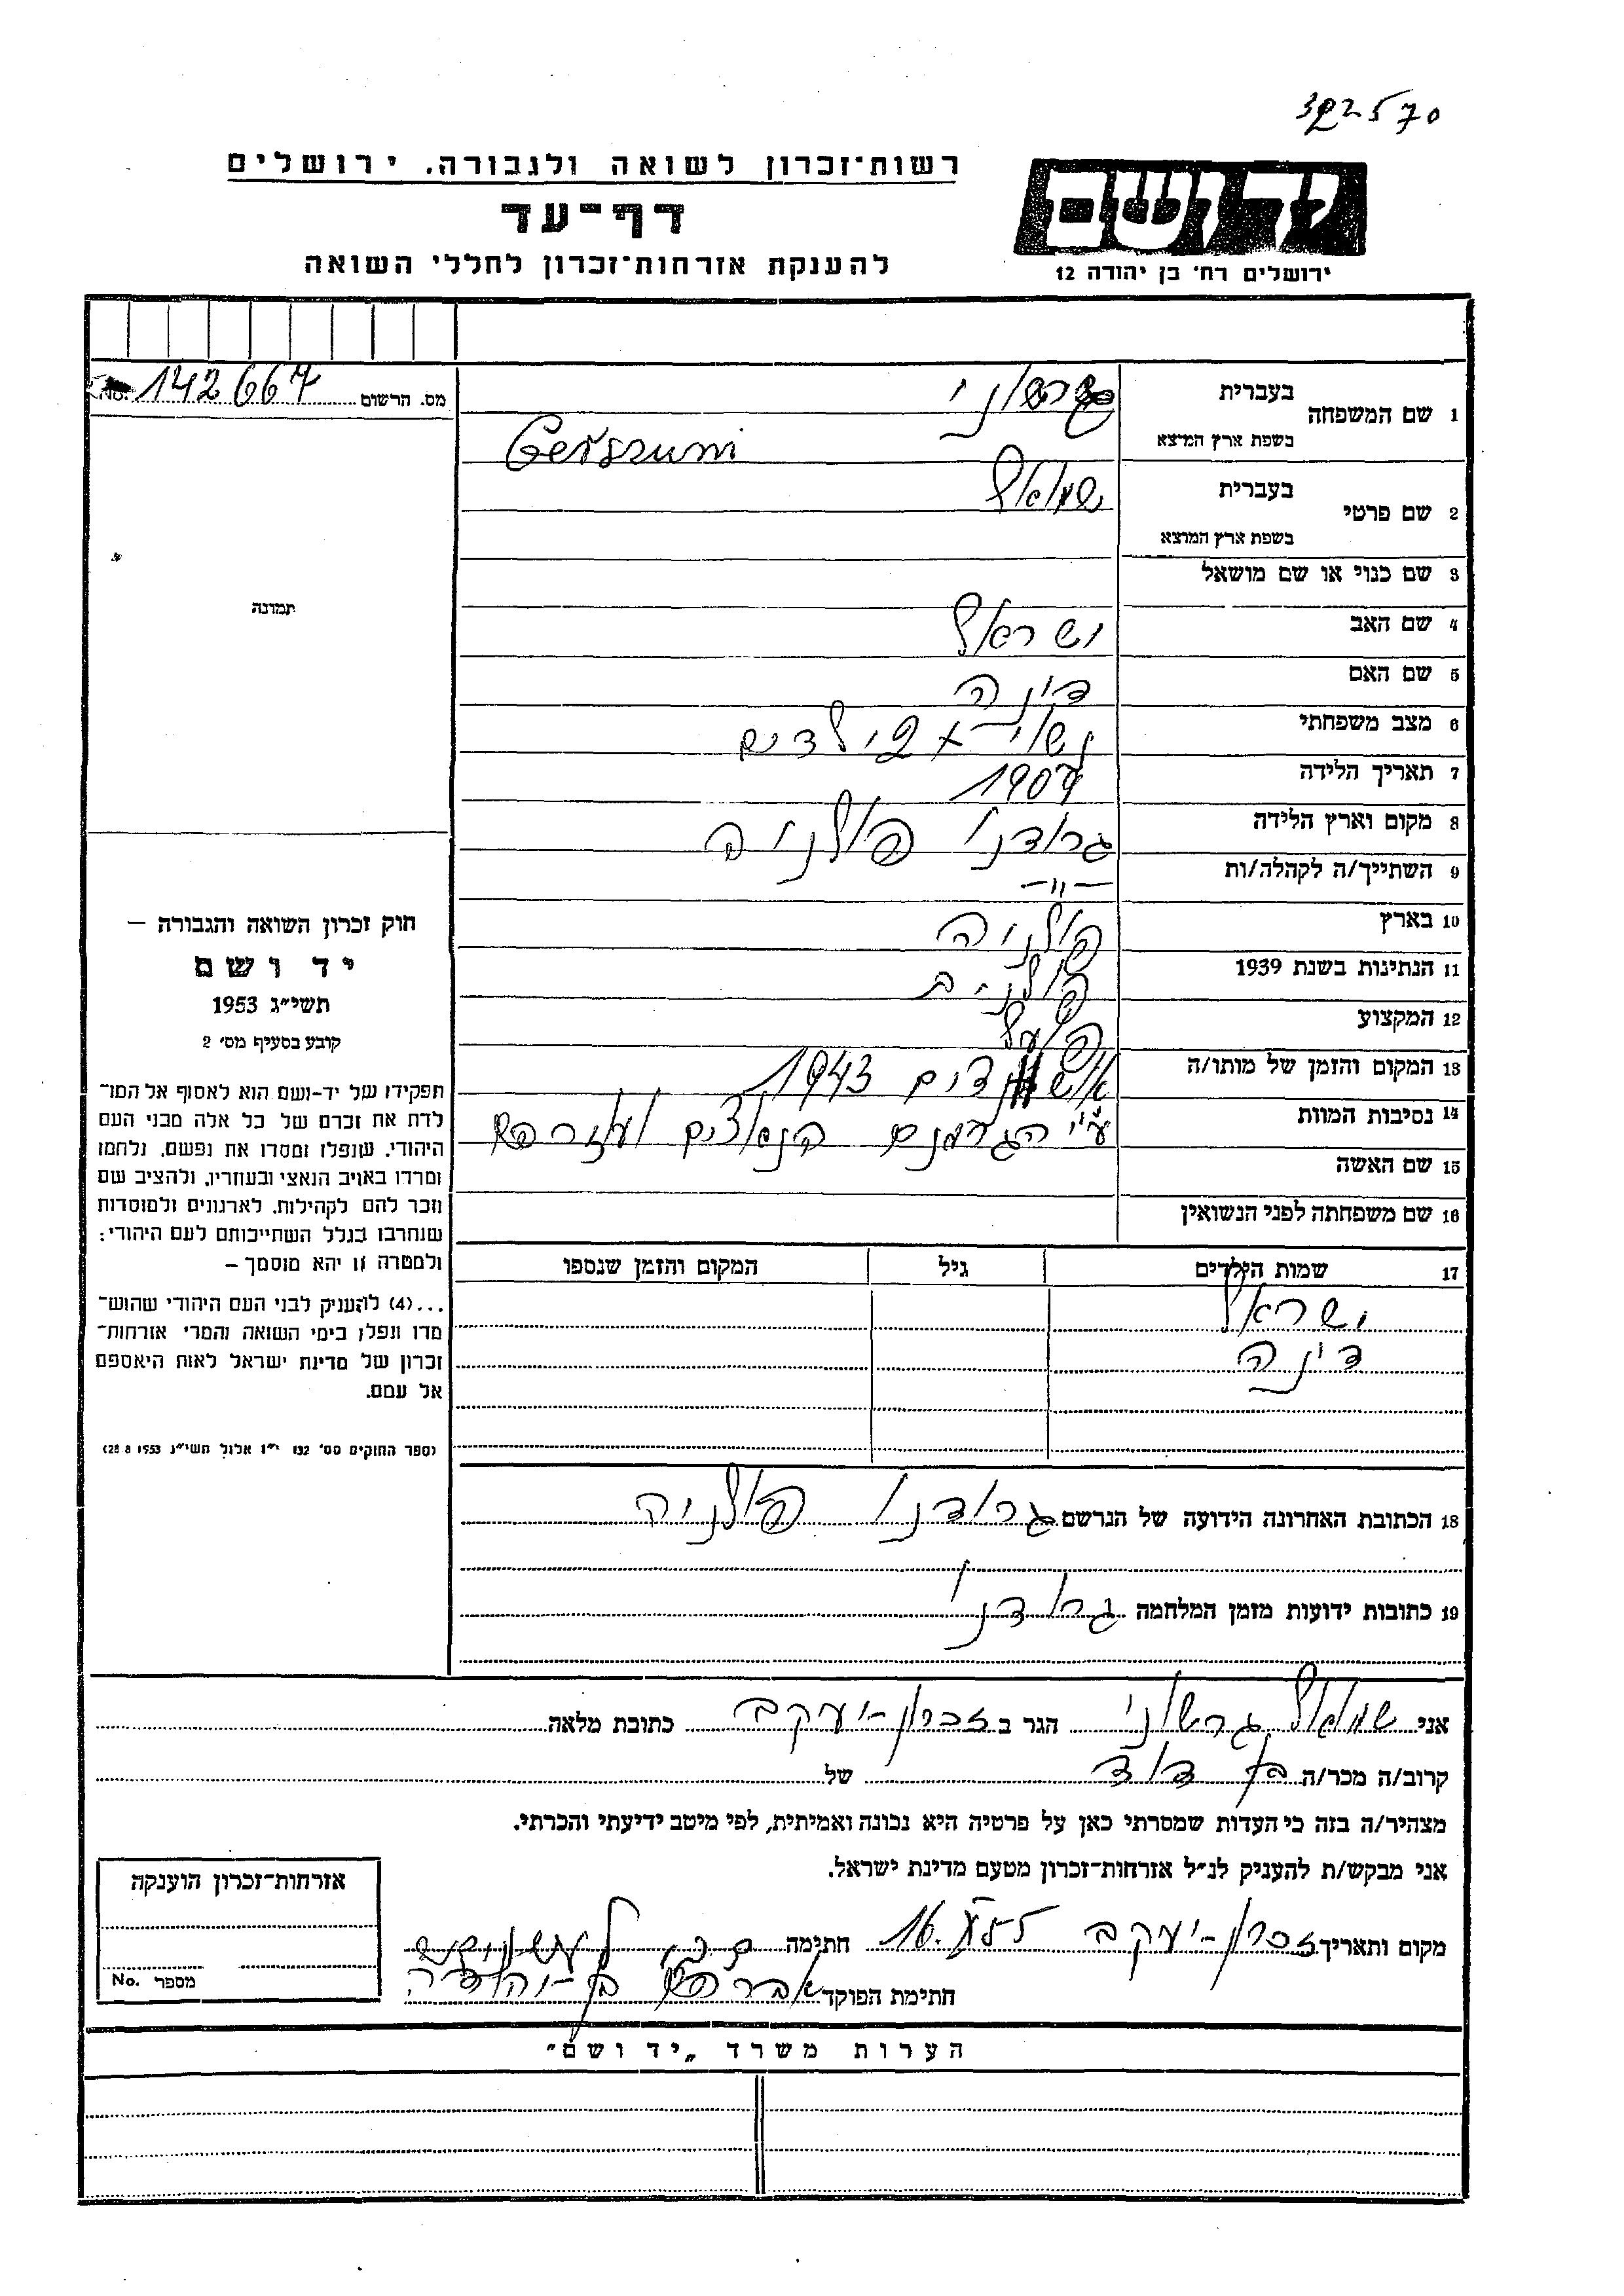 322570
רשות־זכרון לשואה ולגבורה. ירושלים
דף־עד
להענקת אזרחות־זכרון לחללי השואה
יד ושם
ירושלים רח׳ בן יהודה 12
מס. הרשום 142667 No.
תמונה
חוק זכרון השואה והגבורה —
יד ושם
תשי״ג 1953
קובע בסעיף מס׳ 2
תפקידו של יד-ושם הוא לאסוף אל המו־
לדת את זכרם של כל אלה מבני העם
היהודי, שנפלו ומסרו את נפשם, נלחמו
ומרדו באויב הנאצי ובעוזריו, ולהציב שם
וזכר להם לקהילות, לארגונים ולמוסדות
שנחרבו בגלל השתייכותם לעם היהודי:
ולמטרה זו יהא מוסמך —
...(4) להעניק לבני העם היהודי שהוש־
מדו ונפלו בימי השואה והמרי אזרחות־
זכרון של מדינת ישראל לאות היאספם
אל עמם.
(ספר החוקים מס׳ 132 י״ז אלול תשי״ג 28.8.1953)
1 שם המשפחה בעברית גרשוני
בשפת ארץ המוצא Gerszuni
2 שם פרטי בעברית שמואל
בשפת ארץ המוצא
3 שם כנוי או שם מושאל
4 שם האב ישראל
5 שם האם דינה
6 מצב משפחתי נשוי + 2 ילדים
7 תאריך הלידה 1907
8 מקום וארץ הלידה גרודנו פולניה
9 השתייך/ה לקהלה/ות —״—
10 בארץ פולניה
11 הנתינות בשנת 1939 פולנית
12 המקצוע פועל
13 המקום והזמן של מותו/ה 1943
14 נסיבות המוות ע״י הגרמנים הנאצים ועוזריהם
15 שם האשה
16 שם משפחתה לפני הנשואין
17 שמות הילדים גיל המקום והזמן שנספו
ישראל
דינה
18 הכתובת האחרונה הידועה של הנרשם גרודנו פולניה
19 כתובות ידועות מזמן המלחמה גרודנו
אני שמואל גרשוני הגר ב זכרון-יעקב כתובת מלאה
קרוב/ה מכר/ה בן דוד של
מצהיר/ה בזה כי העדות שמסרתי כאן על פרטיה היא נכונה ואמיתית, לפי מיטב ידיעתי והכרתי.
אני מבקש/ת להעניק לנ״ל אזרחות-זכרון מטעם מדינת ישראל.
מקום ותאריך זכרון-יעקב 16. חתימה
חתימת הפוקד אברהם בן-יהודה
אזרחות־זכרון הוענקה
מספר No.
הערות משרד „יד ושם״